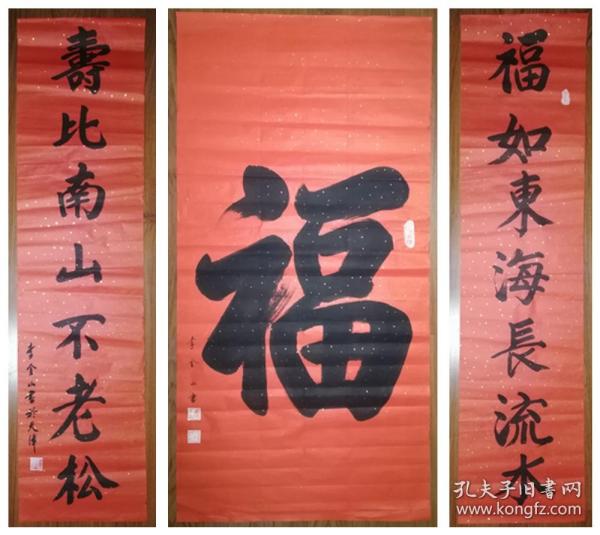 福如東海長流水
福
李金山書
壽比南山不老松
李金山書於天津
孔夫子旧書网
www.kongfz.com